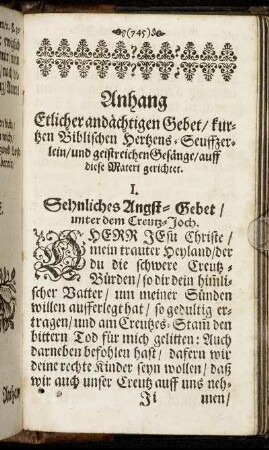 (745)
Anhang
Etlicher andächtigen Gebet/ kur-
tzen Biblischen Hertzens-Seuffzer-
lein/ und geistreichen Gesänge/ auff
diese Materi gerichtet.
I.
Sehnliches Angst-Gebet/
unter dem Creutz-Joch.
O HERR JEsu Christe/
mein trauter Heyland/ der
du die schwere Creutz-
Bürden/ so dir dein himli-
scher Vatter/ um meiner Sünden
willen aufferlegt hat/ so gedultig er-
tragen/ und am Creutzes-Stam̃ den
bittern Tod für mich gelitten: Auch
darneben befohlen hast/ dafern wir
deine rechte Kinder seyn wollen/ daß
wir auch unser Creutz auff uns neh-
Ji men/